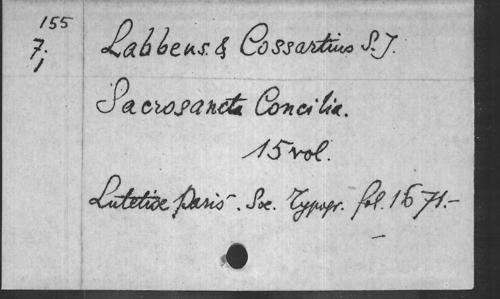 155
7;
Labbeus & Cossartius S.J.
Sacrosancta Concilia.
15 vol.
Lutetiae Paris. Soc. Typogr. fol. 1671.-